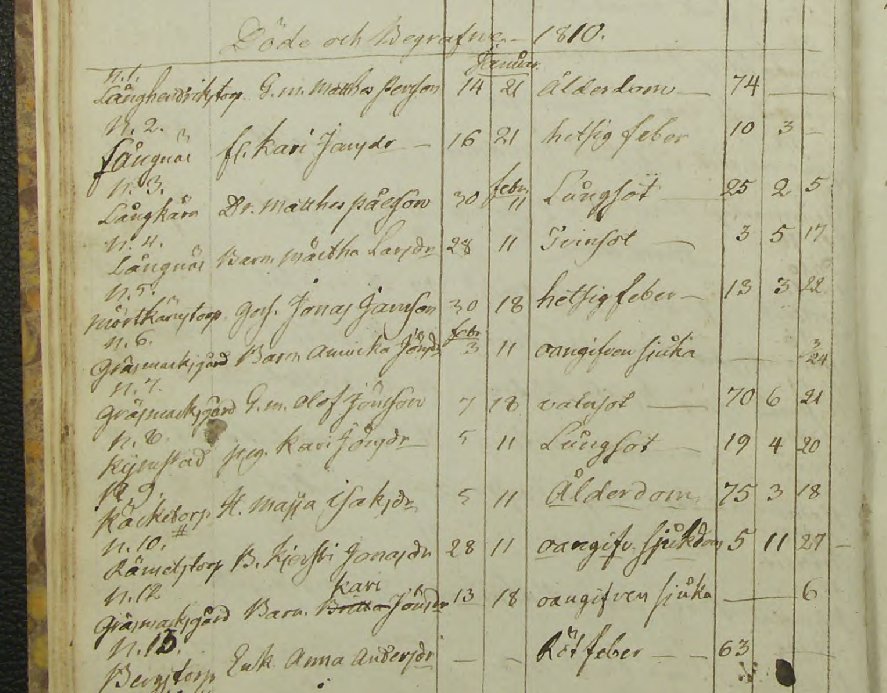 Döde och Begrafne - 1810.
Januar.
n. 1.
Långhendrikstorp G. m. Matthes Person 14 21 Ålderdom 74
N. 2.
Långnäs fl. Kari Jansdr 16 21 hetsig feber 10 3
N. 3.
febr.
Långkärn Dr. Matthes Pålson 30 11 Lungsot 25 2 5
N. 4.
Långnäs Barn Märtha Larsdr 28 11 Tvinsot 3 5 17
N. 5.
Mörtkärnstorp Goss. Jonas Janson 30 18 hetsig feber 13 3 22
N. 6.
febr
Gräsmarksgård Barn Annika Jönsdr 3 11 oangifven sjuka 3 24
N. 7.
Gräsmarksgård G. m. Olof Jönson 7 18 vatusot 70 6 21
N. 8.
Kymstad pig. Kari Jönsdr 5 11 Lungsot 19 4 20
N. 9.
H. Maja Isaksdr 5 11 Ålderdom 75 3 18
N. 10. #
B. Kjersti Jonasdr 28 11 oangifv. sjukdom 5 11 27
N. 12
Kari
Gräsmarksgård Barn Britta Jönsdr 13 18 oangifven sjuka 6
N. 13.
Bergstorp Enk. Anna Andersdr Rötfeber 63